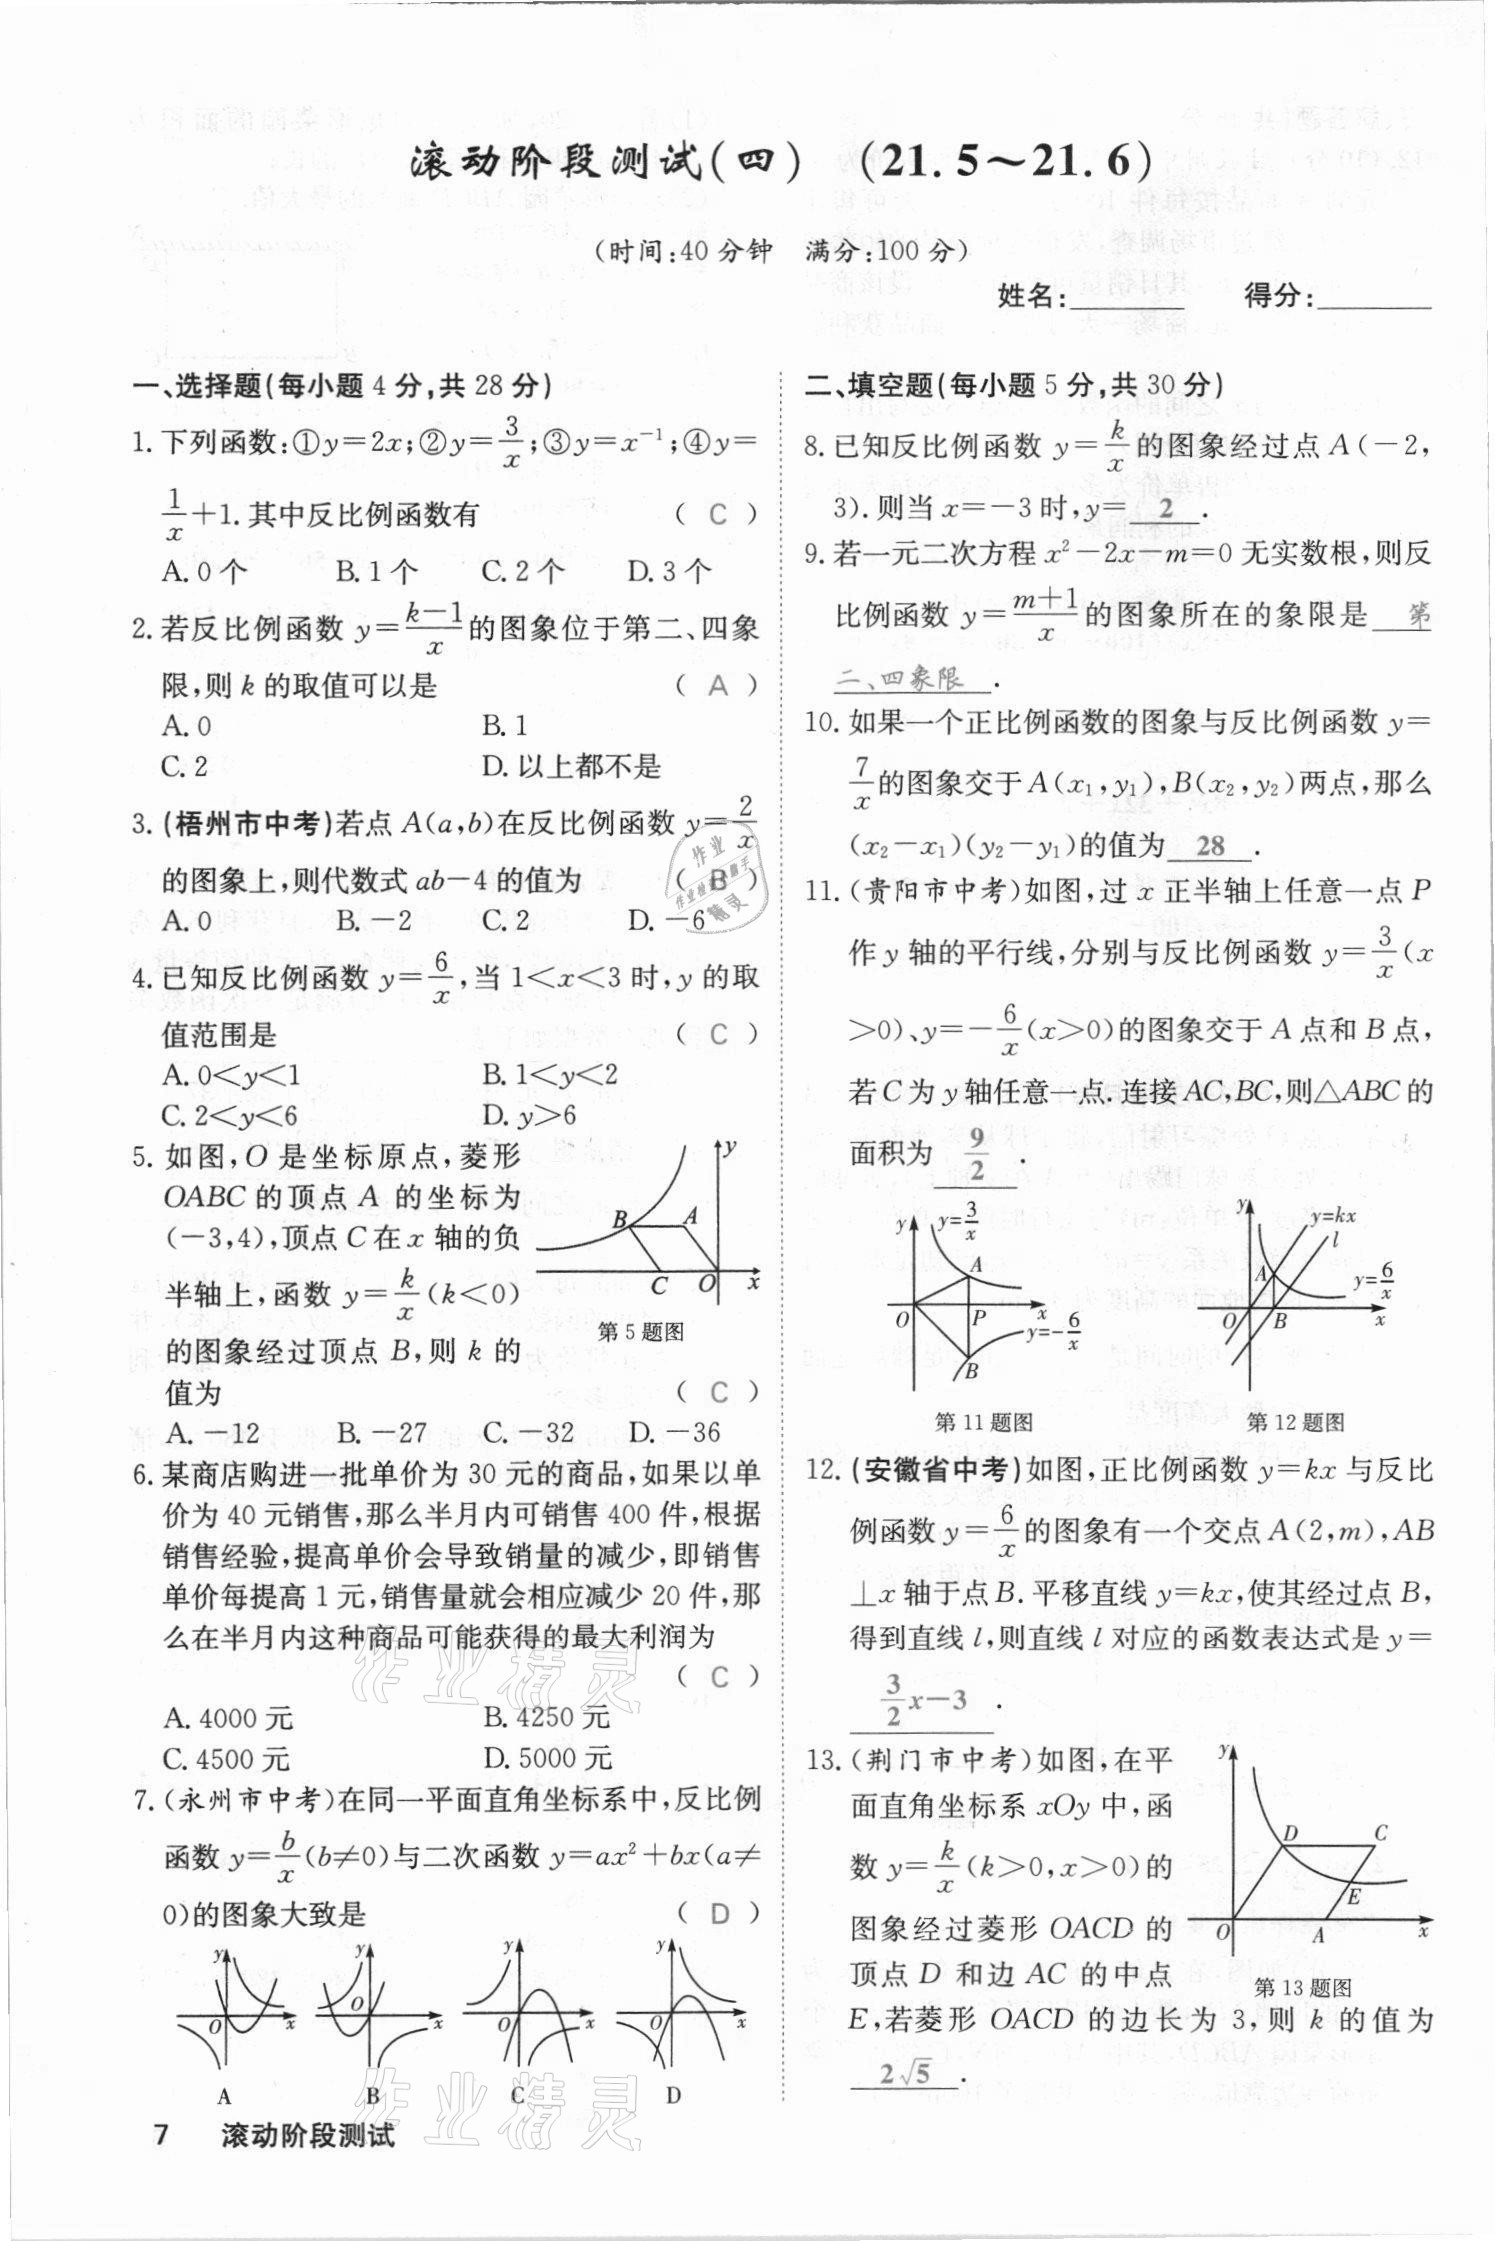 滚动阶段测试(四) (21.5～21.6)
(时间:40分钟 满分:100分)
姓名:________ 得分:________
一、选择题(每小题4分,共28分)
1.下列函数:①y=2x;②y=3/x;③y=x⁻¹;④y=
1/x+1.其中反比例函数有 ( C )
A.0个 B.1个 C.2个 D.3个
2.若反比例函数 y=(k-1)/x的图象位于第二、四象
限,则k的取值可以是 ( A )
A.0 B.1
C.2 D.以上都不是
3.(梧州市中考)若点A(a,b)在反比例函数y=2/x
的图象上,则代数式ab-4的值为 ( B )
A.0 B.-2 C.2 D.-6
4.已知反比例函数 y=6/x,当1<x<3时,y的取
值范围是 ( C )
A.0<y<1 B.1<y<2
C.2<y<6 D.y>6
5.如图,O是坐标原点,菱形
OABC的顶点A的坐标为
(-3,4),顶点C在x轴的负
半轴上,函数 y=k/x(k<0)
的图象经过顶点B,则k的
值为 ( C )
y
B A
C O x
第5题图
A.-12 B.-27 C.-32 D.-36
6.某商店购进一批单价为30元的商品,如果以单
价为40元销售,那么半月内可销售400件,根据
销售经验,提高单价会导致销量的减少,即销售
单价每提高1元,销售量就会相应减少20件,那
么在半月内这种商品可能获得的最大利润为
( C )
A.4000元 B.4250元
C.4500元 D.5000元
7.(永州市中考)在同一平面直角坐标系中,反比例
函数y=b/x(b≠0)与二次函数y=ax²+bx(a≠
0)的图象大致是 ( D )
y y y y
O x O x O x O x
A B C D
二、填空题(每小题5分,共30分)
8.已知反比例函数 y=k/x的图象经过点A(-2,
3).则当x=-3时,y= 2 .
9.若一元二次方程x²-2x-m=0无实数根,则反
比例函数 y=(m+1)/x的图象所在的象限是 第
二、四象限 .
10.如果一个正比例函数的图象与反比例函数 y=
7/x的图象交于A(x₁,y₁),B(x₂,y₂)两点,那么
(x₂-x₁)(y₂-y₁)的值为 28 .
11.(贵阳市中考)如图,过x正半轴上任意一点P
作y轴的平行线,分别与反比例函数 y=3/x(x
>0)、y=-6/x(x>0)的图象交于A点和B点,
若C为y轴任意一点.连接AC,BC,则△ABC的
面积为 9/2 .
y y=3/x
A
O P x
y=-6/x
B
第11题图
y y=kx
l
A y=6/x
O B x
第12题图
12.(安徽省中考)如图,正比例函数y=kx与反比
例函数y=6/x的图象有一个交点A(2,m),AB
⊥x轴于点B.平移直线y=kx,使其经过点B,
得到直线l,则直线l对应的函数表达式是y=
3/2x-3 .
13.(荆门市中考)如图,在平
面直角坐标系xOy中,函
数y=k/x(k>0,x>0)的
图象经过菱形OACD的
顶点D和边AC的中点
E,若菱形OACD的边长为3,则k的值为
2√5 .
y
D C
E
O A x
第13题图
7 滚动阶段测试
作业精灵
作业精灵
作业
作业检查小助手
精灵